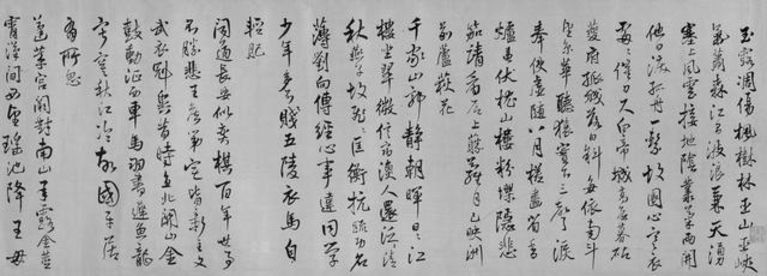 玉露凋傷楓樹林巫山巫峽
氣蕭森江間波浪兼天湧
塞上風雲接地陰叢菊兩開
他日淚孤舟一繫故園心寒衣
處處催刀尺白帝城高急暮砧
夔府孤城落日斜每依南斗
望京華聽猿實下三聲淚
奉使虛隨八月槎畫省香
爐違伏枕山樓粉堞隱悲
笳請看石上藤蘿月已映洲
前蘆荻花
千家山郭靜朝暉日日江
樓坐翠微信宿漁人還泛泛清
秋燕子故飛飛匡衡抗疏功名
薄劉向傳經心事違同學
少年多不賤五陵衣馬自
輕肥
聞道長安似奕棋百年世事
不勝悲王侯第宅皆新主文
武衣冠異昔時直北關山金
鼓動征西車馬羽書遲魚龍
寂寞秋江冷故國平居
有所思
蓬萊宮闕對南山承露金莖
霄漢間西望瑤池降王母